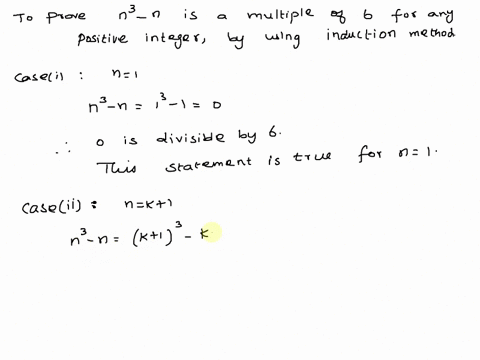 To prove n³-n is a multiple of 6 for any
positive integer, by using induction method
Case(i) : n=1
n³-n = 1³-1 = 0
∴ 0 is divisible by 6.
This statement is true for n=1.
Case(ii) : n=k+1
n³-n = (k+1)³ - k